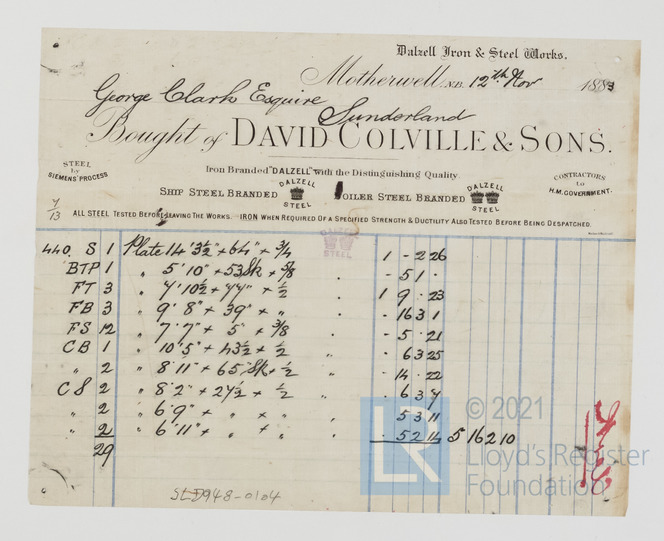 Dalzell Iron & Steel Works.
Motherwell, N.B. 12th Nov 1883
George Clark Esquire
Sunderland
Bought of DAVID COLVILLE & SONS.
Iron Branded "DALZELL" with the Distinguishing Quality.
STEEL by SIEMENS' PROCESS
SHIP STEEL BRANDED DALZELL STEEL BOILER STEEL BRANDED DALZELL STEEL
CONTRACTORS to H.M. GOVERNMENT.
7/13
ALL STEEL TESTED BEFORE LEAVING THE WORKS. IRON WHEN REQUIRED OF A SPECIFIED STRENGTH & DUCTILITY ALSO TESTED BEFORE BEING DESPATCHED.
STEEL
440. S 1 Plate 14' 3½" + 64" + 3/4 1 - 2 26
BTP 1 " 5' 10" + 53 Sk + 5/8 " - 5 1 .
FT 3 " 7' 10½ + 44" + ½ " 1 9 . 23
FB 3 " 9' 8" + 39" + " " - 16 3 1
FS 12 " 7' 7" + 5" + 3/8 " - 5 . 21
CB 1 " 10' 5" + 43½ + ½ " . 6 3 25
" 2 " 8' 11" + 65 Sk + ½ " . 14 . 22
CS 2 " 8' 2" + 27½ + ½ " . 6 3 7
" 2 " 6' 9" + " + " . 5 3 11
" 2 " 6' 11" + " + " " . 5 2 14 5 16 2 10
29
SLD948-0104
LR
© 2021
Lloyd's Register
Foundation